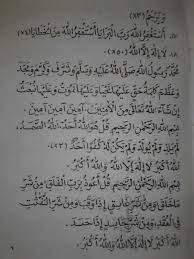 وَيَرْحَمُ (٨٣)
١٧. أَسْتَغْفِرُ اللهَ رَبَّ الْبَرَايَا أَسْتَغْفِرُ اللهَ مِنَ الْخَطَايَا (٧٤)
١٨. لَا إِلٰهَ إِلَّا اللهُ (٨٥٠)
مُحَمَّدٌ رَسُولُ اللهِ صَلَّى اللهُ عَلَيْهِ وَسَلَّمَ وَشَرَّفَ وَكَرَّمَ وَمَجَّدَ
وَعَلَيْهَا نُبْعَثُ
إِنْ شَاءَ اللهُ مِنَ الْآمِنِينَ آمِينَ آمِينَ.
بِسْمِ اللهِ الرَّحْمٰنِ الرَّحِيمِ قُلْ هُوَ اللهُ أَحَدٌ. اللهُ الصَّمَدُ.
لَمْ يَلِدْ وَلَمْ يُولَدْ. وَلَمْ يَكُنْ لَهُ كُفُوًا أَحَدٌ (٨٣)
اللهُ أَكْبَرُ لَا إِلٰهَ إِلَّا اللهُ وَاللهُ أَكْبَرُ.
بِسْمِ اللهِ الرَّحْمٰنِ الرَّحِيمِ. قُلْ أَعُوذُ بِرَبِّ الْفَلَقِ. مِنْ شَرِّ
مَا خَلَقَ. وَمِنْ شَرِّ غَاسِقٍ إِذَا وَقَبَ. وَمِنْ شَرِّ النَّفَّاثَاتِ
فِي الْعُقَدِ. وَمِنْ شَرِّ حَاسِدٍ إِذَا حَسَدَ.
اللهُ أَكْبَرُ لَا إِلٰهَ إِلَّا اللهُ وَاللهُ أَكْبَرُ.